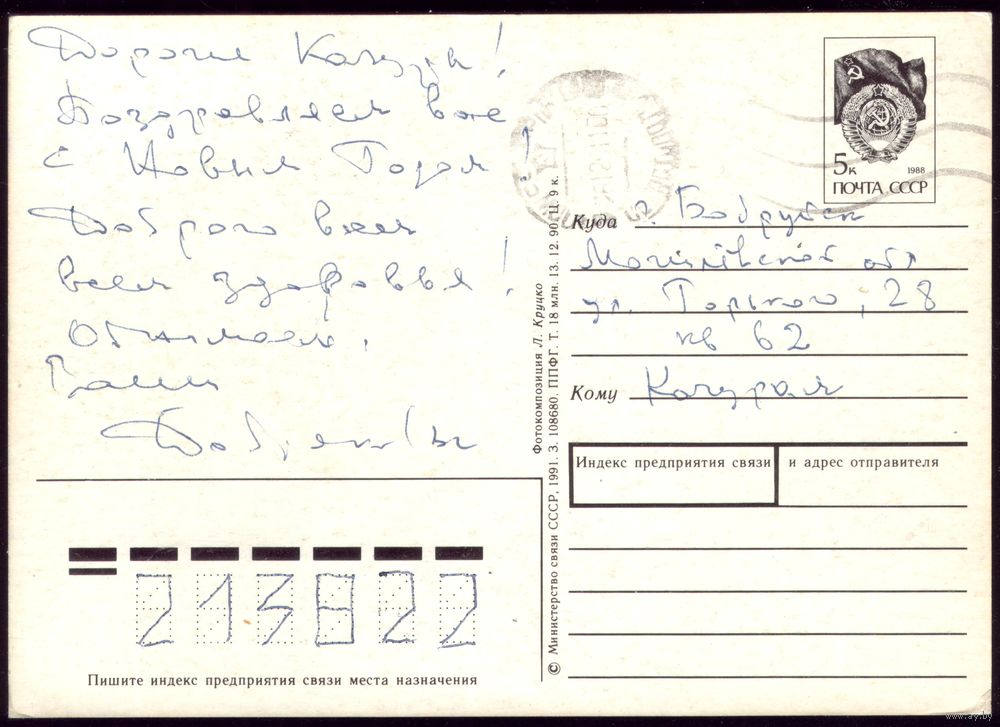 Дорогие Качуры!
Поздравляем вас
с Новым Годом!
Доброго всем
всем здоровья!
Обнимаем.
Ваши
5к 1988
ПОЧТА СССР
Куда г. Бобруйск
Могилёвской обл
ул. Горького, 28
кв 62
Кому Качурам
Индекс предприятия связи и адрес отправителя
213822
Пишите индекс предприятия связи места назначения
Фотокомпозиция Л. Круцко
© Министерство связи СССР, 1991. З. 108680. ППФГ. Т. 18 млн. 13. 12. 90. Ц. 9 к.
www.ay.by